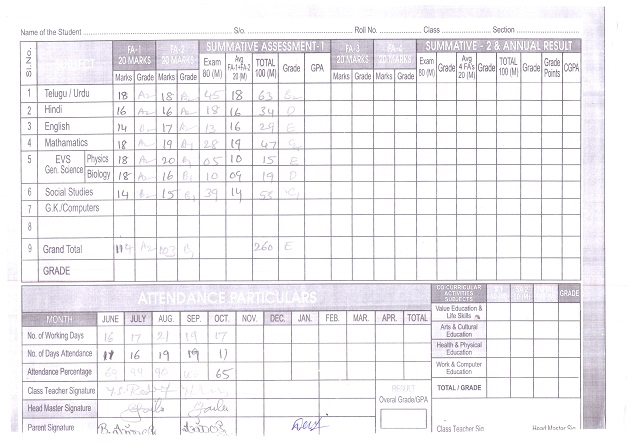 Name of the Student S/o. Roll No. Class Section
Sl.No. SUBJECT FA-1 20 MARKS FA-2 20 MARKS SUMMATIVE ASSESSMENT-1 FA-3 20 MARKS FA-4 20 MARKS SUMMATIVE - 2 & ANNUAL RESULT
Marks Grade Marks Grade Exam 80 (M) Avg FA-1+FA-2 20 (M) TOTAL 100 (M) Grade GPA Marks Grade Marks Grade Exam 80 (M) Grade Avg 4 FA's 20 (M) Grade TOTAL 100 (M) Grade Grade Points CGPA
1 Telugu / Urdu 18 A2 18 A2 45 18 63
2 Hindi 16 A2 16 A2 18 16 34 D
3 English 14 17 A2 13 16 29 E
4 Mathamatics 18 A2 19 A1 28 19 47
5 EVS Gen. Science Physics 18 A2 20 A1 05 10 15 E
Biology 18 A2 16 B1 10 09 19 D
6 Social Studies 14 B2 15 B1 39 14 53 C1
7 G.K./Computers
8
9 Grand Total 114 A2 103 B1 260 E
GRADE
ATTENDANCE PARTICULARS
MONTH JUNE JULY AUG. SEP. OCT NOV. DEC. JAN. FEB. MAR. APR. TOTAL
No. of Working Days 16 17 21 19 17
No. of Days Attendance 11 16 19 19 11
Attendance Percentage 69 94 90 65
Class Teacher Signature
Head Master Signature
Parent Signature
Overal Grade/GPA
CO-CURRICULAR ACTIVITIES SUBJECTS GRADE
Value Education & Life Skills
Arts & Cultural Education
Health & Physical Education
Work & Computer Education
TOTAL / GRADE
Class Teacher Sig Head Master Sig